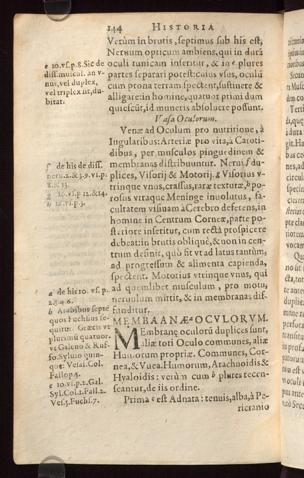 144 HISTORIA
Verùm in brutis, septimus sub his est,
Neruum opticum ambiens, qui in durā
oculi tunicam inseritur, & in plures
partes separari potest: cuius vsus, oculū
cum prona terram spectent, sustinere &
alligare: in homine, quatuor priori dum
quiescūt, id muneris absoluere possunt.
Vasa Oculorum.
Venæ ad Oculum pro nutritione, à
Iugularibus: Arteriæ pro vita, à Caroti-
dibus, per musculos pinguedinem &
membranas distribuuntur. Nerui f du-
plices, Visorij & Motorij. g Visorius v-
trinque vnus, crassus, raræ texturæ, h po-
rosus vtraque Meninge inuolutus, fa-
cultatem visuam à Cerebro deferens, in
homine in Centrum Corneæ, parte po-
steriore inseritur, cum rectà prospicere
debeat: in brutis obliquè, & non in cen-
trum desinit, quò sit vt ad latus tantùm,
ad progressum & alimenta capienda,
spectent. Motorius vtrinque vnus, qui
ad quemlibet musculum, pro motu,
neruulum mittit, & in membranas dif-
funditur.
MEMBRANÆ OCVLORVM.
Membranę oculorū duplices sunt,
aliæ toti Oculo communes, aliæ
Humorum propriæ. Communes, Cor-
nea, & Vuea. Humorum, Arachnoidis &
Hyaloidis: verùm cum b plures recen-
seantur, de iis ordine.
Prima c est Adnata: tenuis, alba, à Pe-
ricranio
e 10. vs. p. 8. Sic de
diss. muscul. an v-
nus, vel duplex,
vel triplex sit, du-
bitat.
f de his de diss.
g 10. vs. p.
h 10. vs. p. 3.
a de hiero. vs. p.
b Arabibus septē
quos Fuchsius se-
quitur. Græcis vt
plurimū quatuor.
vt Galeno & Ruf-
fo. Syluio quin-
que: Vesal. Col.
Fallop. 5.
c 10. vs. p. 2. Gal.
Syl. Col. 2. Fall. 2.
Ves. 5. Fuchs. 7.